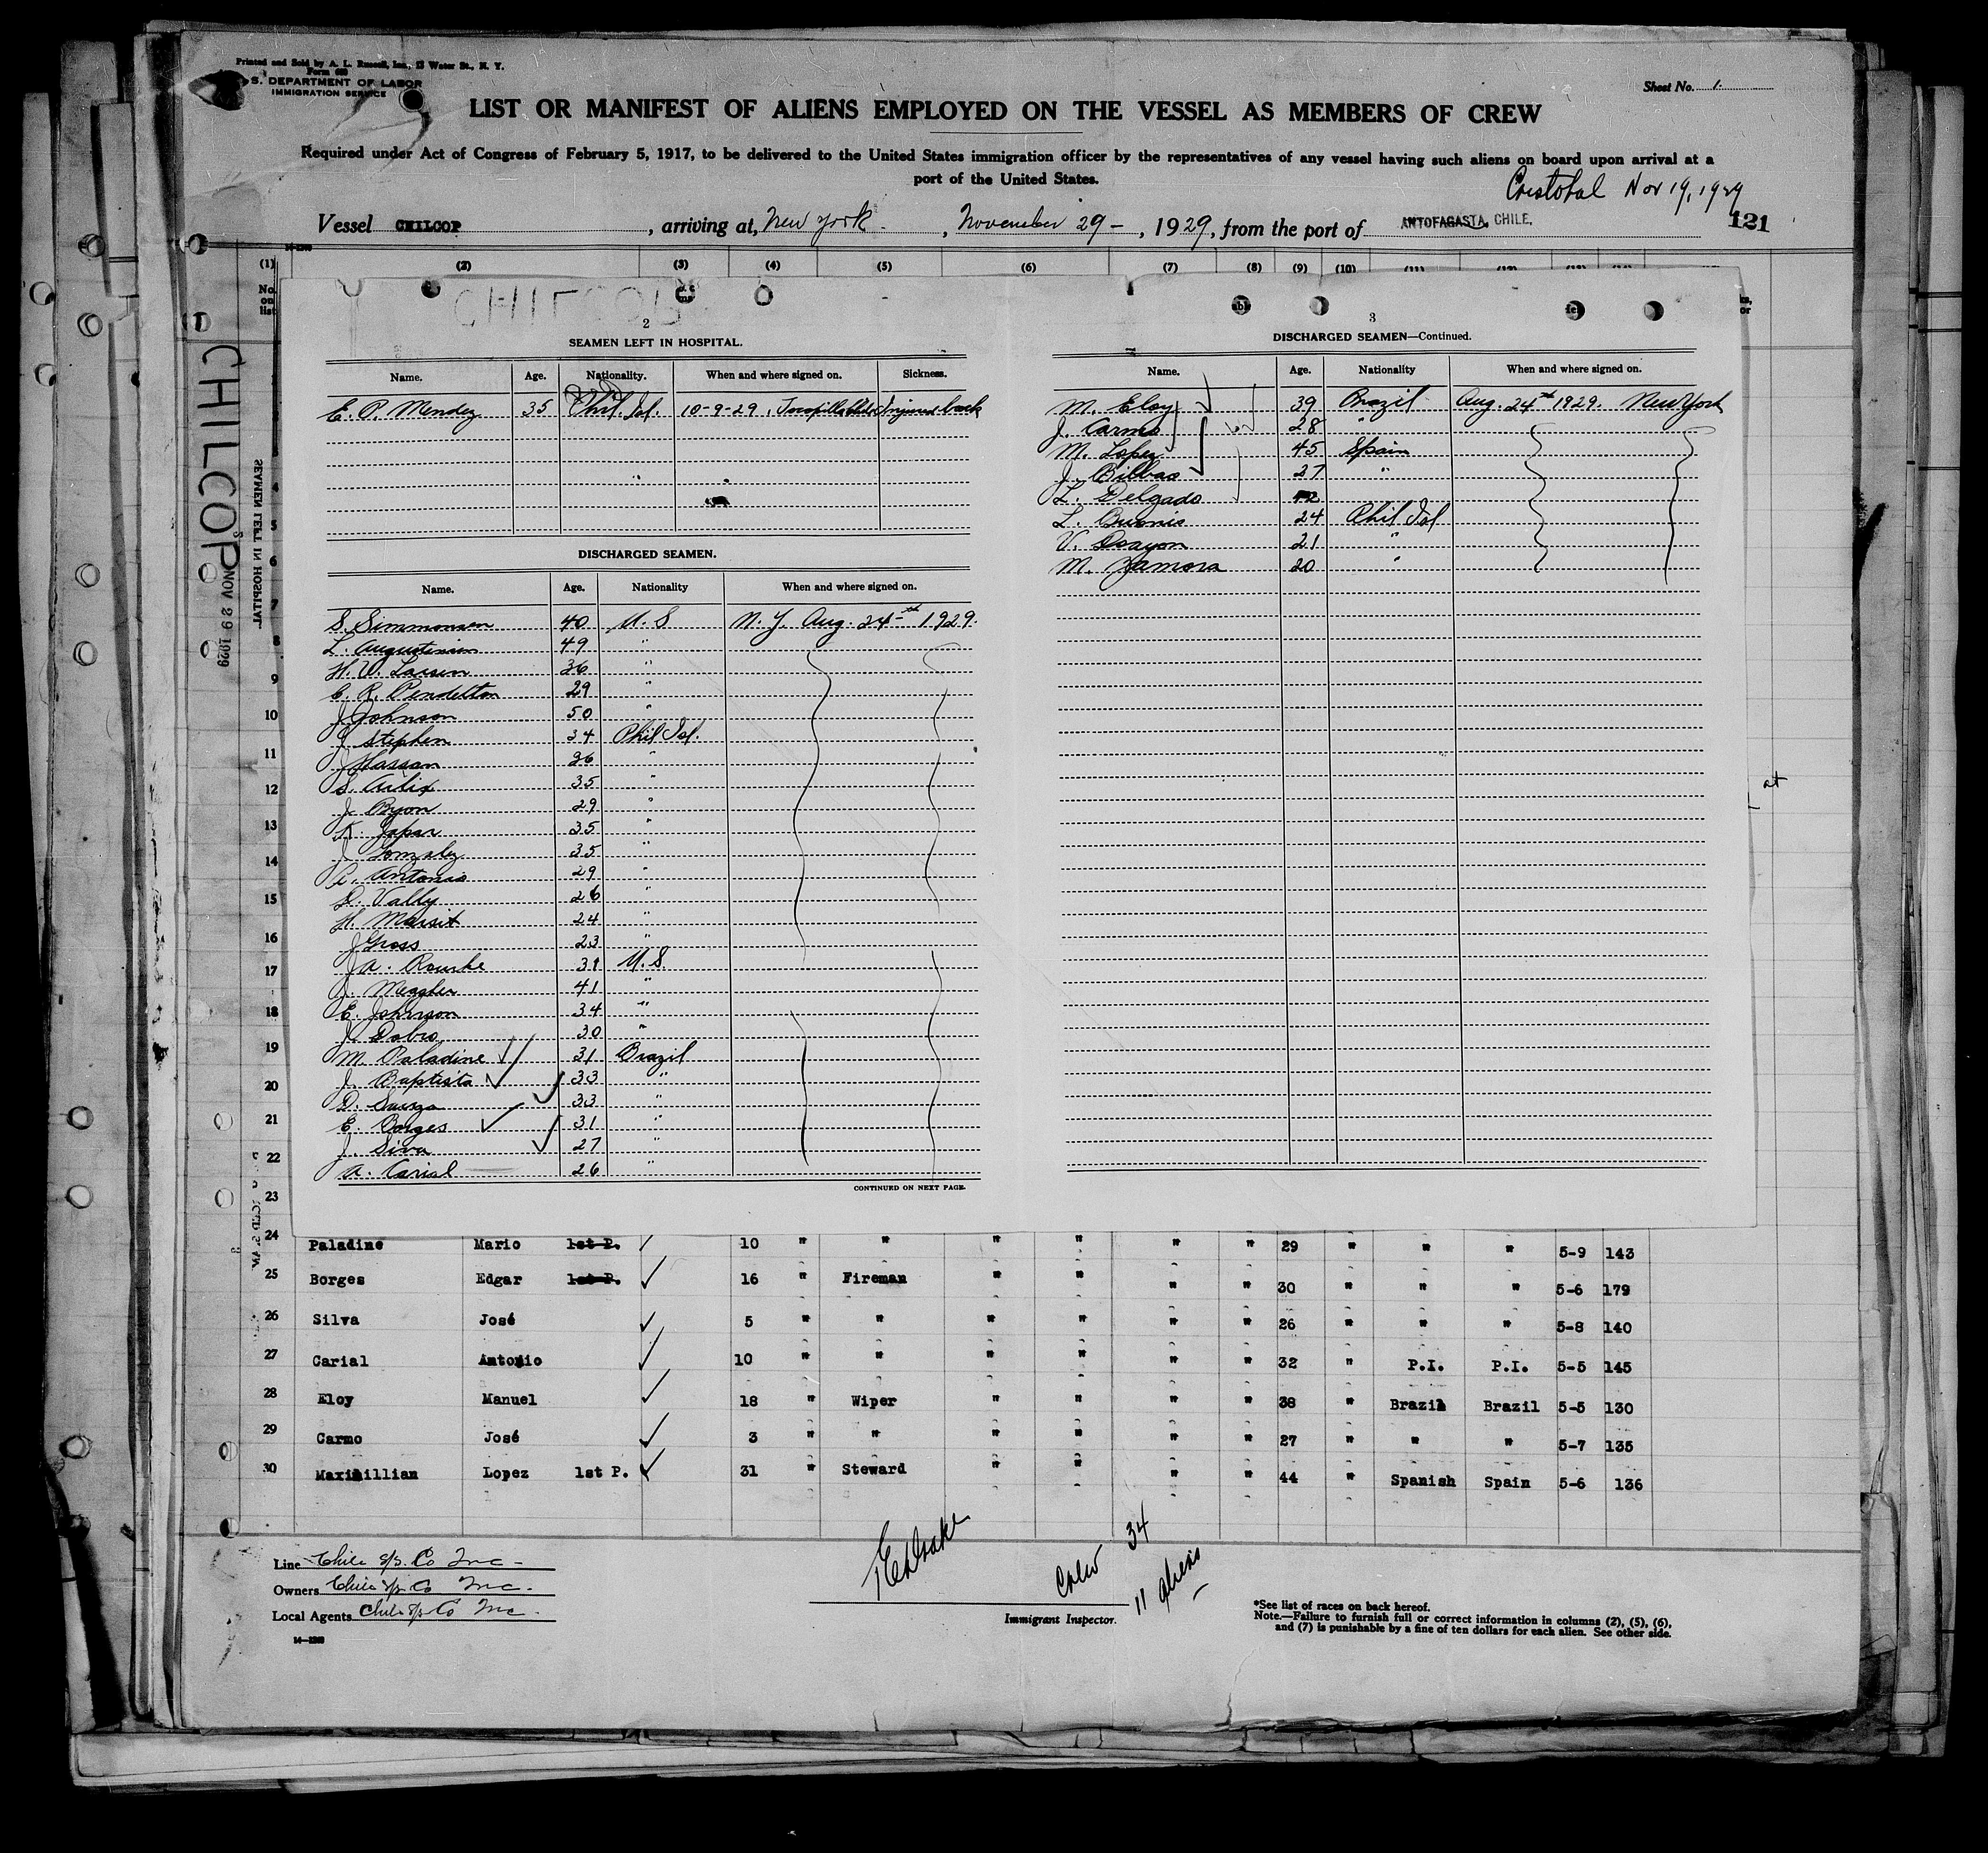 Printed and Sold by A. L. Russell, Inc., 13 Water St., N. Y.
Form 680
S. DEPARTMENT OF LABOR
IMMIGRATION SERVICE
Sheet No. 1.
LIST OR MANIFEST OF ALIENS EMPLOYED ON THE VESSEL AS MEMBERS OF CREW
Required under Act of Congress of February 5, 1917, to be delivered to the United States immigration officer by the representatives of any vessel having such aliens on board upon arrival at a
port of the United States.
Cristobal Nov 19, 1929
Vessel CHILCOP, arriving at, New York, November 29 -, 1929, from the port of ANTOFAGASTA, CHILE.
121
(1) (2) (3) (4) (5) (6) (7) (8) (9) (10) (11)
No. on list
CHILCOP
NOV 29 1929
SEAMEN LEFT IN HOSPITAL
CHILCOP
2
SEAMEN LEFT IN HOSPITAL.
Name. Age. Nationality. When and where signed on. Sickness.
E. P. Mendez 35 Phil Isl. 10-9-29, Injured back
DISCHARGED SEAMEN.
Name. Age. Nationality When and where signed on.
S. Simmonsen 40 U.S N.Y. Aug. 24th 1929.
L. Augustinien 49 "
H. W. Larsen 36 "
C. R. Pendelton 29 "
J Johnson 50 "
J Stephen 34 Phil Isl.
J Hassan 26 "
S. 35 "
J. Byon 29 "
K. Japar 35 "
J. Gonzalez 35 "
A. Antonio 29 "
D. Vally 26 "
H. Massit 24 "
J Gross 23 "
J A. Rourke 31 U.S.
J. Meagher 41 "
E. Johnson 34 "
J. Dobro 30 "
M. Paladine 31 Brazil
J. Baptista 33 "
D. Souza 33 "
E. Borges 31 "
J. Silva 27 "
A. Carial 26 "
CONTINUED ON NEXT PAGE.
3
DISCHARGED SEAMEN—Continued.
Name. Age. Nationality When and where signed on.
M. Eloy 39 Brazil Aug. 24th 1929. New York
J. Carmo 28 "
M. Lopez 45 Spain
J. Bilbao 27 "
L. Delgado 42
L. 24 Phil Isl
V. 21 "
M. Zamora 20 "
24 Paladine Mario 1st P. 10 " " " " " " 29 " " " 5-9 143
25 Borges Edgar 1st P. 16 " Fireman " " " " 30 " " " 5-6 179
26 Silva José 5 " " " " " " 26 " " " 5-8 140
27 Carial Antonio 10 " " " " " " 32 " P.I. P.I. 5-5 145
28 Eloy Manuel 18 " Wiper " " " " 38 " Brazil Brazil 5-5 130
29 Carmo José 3 " " " " " " 27 " " " 5-7 135
30 Maximillian Lopez 1st P. 31 " Steward " " " " 44 " Spanish Spain 5-6 136
Line Chile S/S. Co Inc -
Owners Chile S/S Co Inc.
Local Agents Chile S/S Co Inc.
14—1240
Immigrant Inspector.
Crew 34
11 aliens
*See list of races on back hereof.
Note.—Failure to furnish full or correct information in columns (2), (5), (6),
and (7) is punishable by a fine of ten dollars for each alien. See other side.